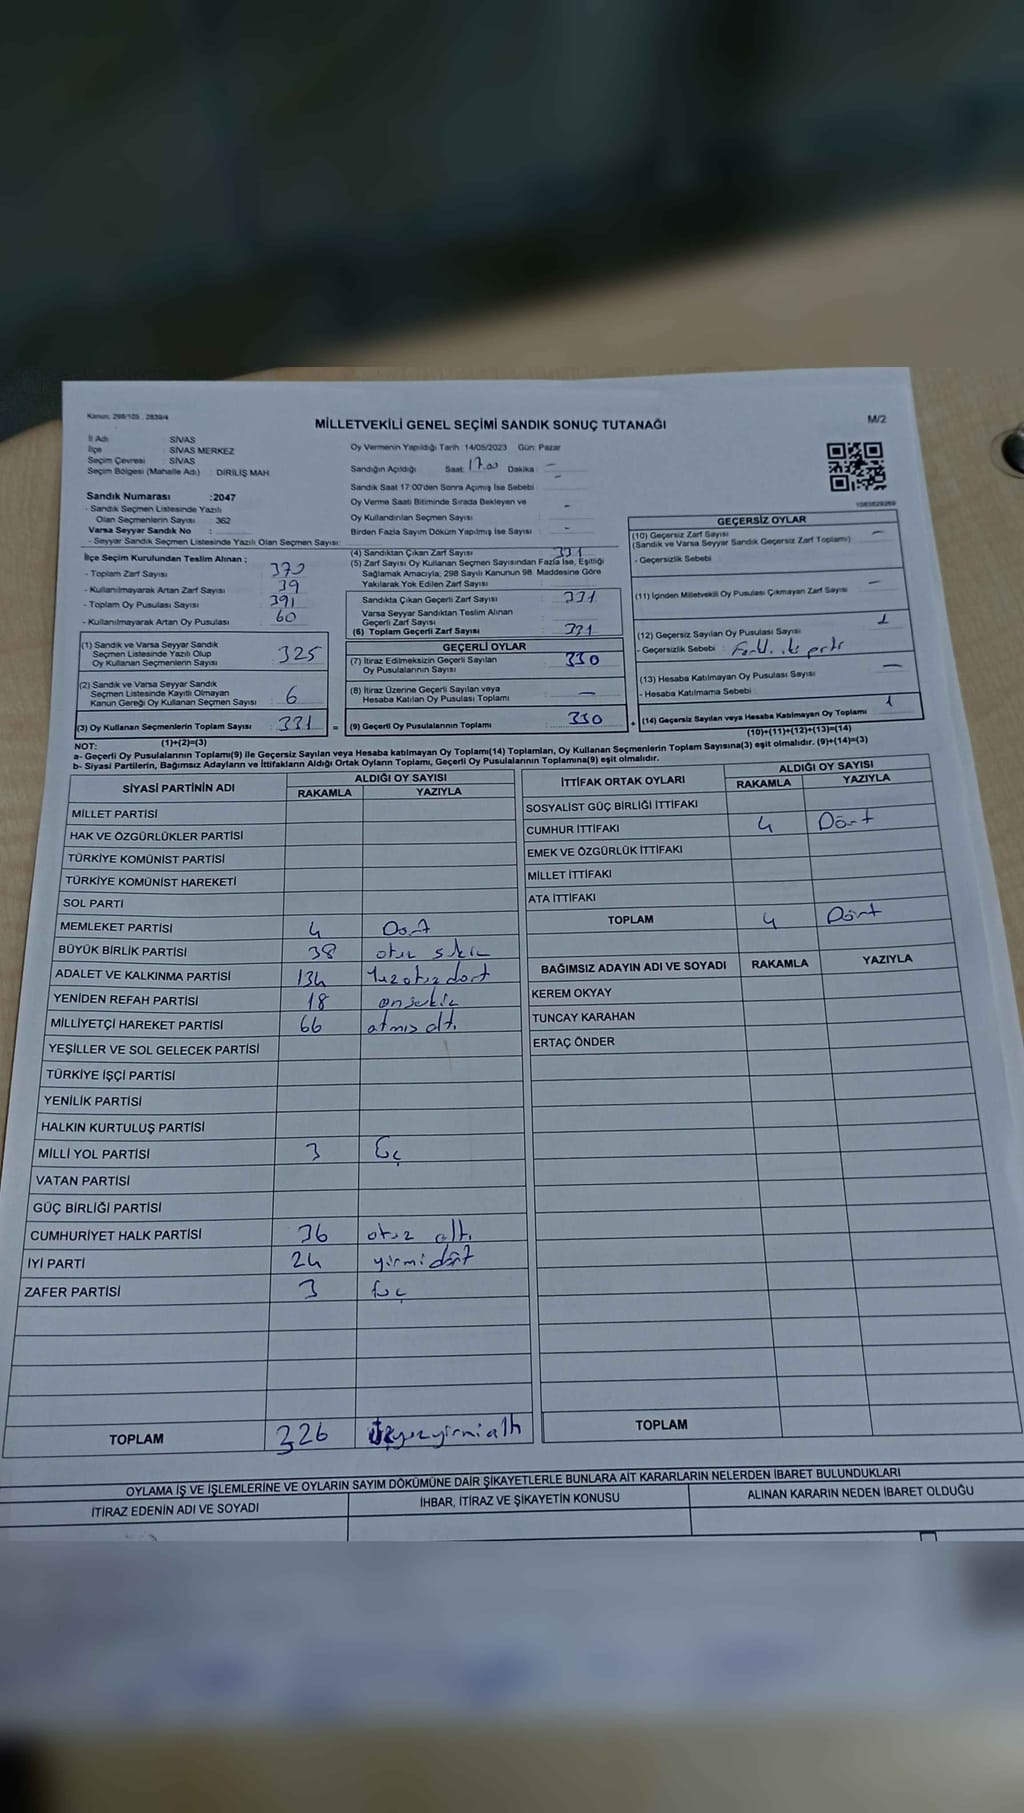 Kanun: 298/105 , 2839/4
MİLLETVEKİLİ GENEL SEÇİMİ SANDIK SONUÇ TUTANAĞI
M/2
İl Adı : SİVAS
İlçe : SİVAS MERKEZ
Seçim Çevresi : SİVAS
Seçim Bölgesi (Mahalle Adı) : DİRİLİŞ MAH
Sandık Numarası :2047
- Sandık Seçmen Listesinde Yazılı
Olan Seçmenlerin Sayısı : 362
Varsa Seyyar Sandık No :
- Seyyar Sandık Seçmen Listesinde Yazılı Olan Seçmen Sayısı:
Oy Vermenin Yapıldığı Tarih :14/05/2023 Gün: Pazar
Sandığın Açıldığı Saat: 17.00 Dakika : –
Sandık Saat 17:00'den Sonra Açılmış İse Sebebi : –
Oy Verme Saati Bitiminde Sırada Bekleyen ve
Oy Kullandırılan Seçmen Sayısı : –
Birden Fazla Sayım Döküm Yapılmış İse Sayısı : –
İlçe Seçim Kurulundan Teslim Alınan ;
- Toplam Zarf Sayısı : 370
- Kullanılmayarak Artan Zarf Sayısı : 39
- Toplam Oy Pusulası Sayısı : 391
- Kullanılmayarak Artan Oy Pusulası : 60
(1) Sandık ve Varsa Seyyar Sandık
Seçmen Listesinde Yazılı Olup
Oy Kullanan Seçmenlerin Sayısı : 325
(2) Sandık ve Varsa Seyyar Sandık
Seçmen Listesinde Kayıtlı Olmayan
Kanun Gereği Oy Kullanan Seçmen Sayısı : 6
(3) Oy Kullanan Seçmenlerin Toplam Sayısı : 331 =
(1)+(2)=(3)
(4) Sandıktan Çıkan Zarf Sayısı : 331
(5) Zarf Sayısı Oy Kullanan Seçmen Sayısından Fazla İse, Eşitliği
Sağlamak Amacıyla, 298 Sayılı Kanunun 98. Maddesine Göre
Yakılarak Yok Edilen Zarf Sayısı :
Sandıkta Çıkan Geçerli Zarf Sayısı : 331
Varsa Seyyar Sandıktan Teslim Alınan
Geçerli Zarf Sayısı :
(6) Toplam Geçerli Zarf Sayısı : 331
GEÇERLİ OYLAR
(7) İtiraz Edilmeksizin Geçerli Sayılan
Oy Pusulalarının Sayısı : 330
(8) İtiraz Üzerine Geçerli Sayılan veya
Hesaba Katılan Oy Pusulası Toplamı : –
(9) Geçerli Oy Pusulalarının Toplamı : 330 +
GEÇERSİZ OYLAR
(10) Geçersiz Zarf Sayısı : –
(Sandık ve Varsa Seyyar Sandık Geçersiz Zarf Toplamı)
- Geçersizlik Sebebi :
(11) İçinden Milletvekili Oy Pusulası Çıkmayan Zarf Sayısı : –
(12) Geçersiz Sayılan Oy Pusulası Sayısı : 1
- Geçersizlik Sebebi :
(13) Hesaba Katılmayan Oy Pusulası Sayısı : –
- Hesaba Katılmama Sebebi :
(14) Geçersiz Sayılan veya Hesaba Katılmayan Oy Toplamı : 1
(10)+(11)+(12)+(13)=(14)
NOT:
a- Geçerli Oy Pusulalarının Toplamı(9) ile Geçersiz Sayılan veya Hesaba katılmayan Oy Toplamı(14) Toplamları, Oy Kullanan Seçmenlerin Toplam Sayısına(3) eşit olmalıdır. (9)+(14)=(3)
b- Siyasi Partilerin, Bağımsız Adayların ve İttifakların Aldığı Ortak Oyların Toplamı, Geçerli Oy Pusulalarının Toplamına(9) eşit olmalıdır.
SİYASİ PARTİNİN ADI ALDIĞI OY SAYISI
RAKAMLA YAZIYLA
MİLLET PARTİSİ
HAK VE ÖZGÜRLÜKLER PARTİSİ
TÜRKİYE KOMÜNİST PARTİSİ
TÜRKİYE KOMÜNİST HAREKETİ
SOL PARTİ
MEMLEKET PARTİSİ 4
BÜYÜK BİRLİK PARTİSİ 38 otuz sekiz
ADALET VE KALKINMA PARTİSİ 134 Yüzotuzdört
YENİDEN REFAH PARTİSİ 18 onsekiz
MİLLİYETÇİ HAREKET PARTİSİ 66 atmış altı
YEŞİLLER VE SOL GELECEK PARTİSİ
TÜRKİYE İŞÇİ PARTİSİ
YENİLİK PARTİSİ
HALKIN KURTULUŞ PARTİSİ
MİLLİ YOL PARTİSİ 3 Üç
VATAN PARTİSİ
GÜÇ BİRLİĞİ PARTİSİ
CUMHURİYET HALK PARTİSİ 36 otuz altı
İYİ PARTİ 24 yirmidört
ZAFER PARTİSİ 3 Üç
TOPLAM 326 üçyüzyirmialtı
İTTİFAK ORTAK OYLARI ALDIĞI OY SAYISI
RAKAMLA YAZIYLA
SOSYALİST GÜÇ BİRLİĞİ İTTİFAKI
CUMHUR İTTİFAKI 4 Dört
EMEK VE ÖZGÜRLÜK İTTİFAKI
MİLLET İTTİFAKI
ATA İTTİFAKI
TOPLAM 4 Dört
BAĞIMSIZ ADAYIN ADI VE SOYADI RAKAMLA YAZIYLA
KEREM OKYAY
TUNCAY KARAHAN
ERTAÇ ÖNDER
TOPLAM
OYLAMA İŞ VE İŞLEMLERİNE VE OYLARIN SAYIM DÖKÜMÜNE DAİR ŞİKAYETLERLE BUNLARA AİT KARARLARIN NELERDEN İBARET BULUNDUKLARI
İTİRAZ EDENİN ADI VE SOYADI İHBAR, İTİRAZ VE ŞİKAYETİN KONUSU ALINAN KARARIN NEDEN İBARET OLDUĞU